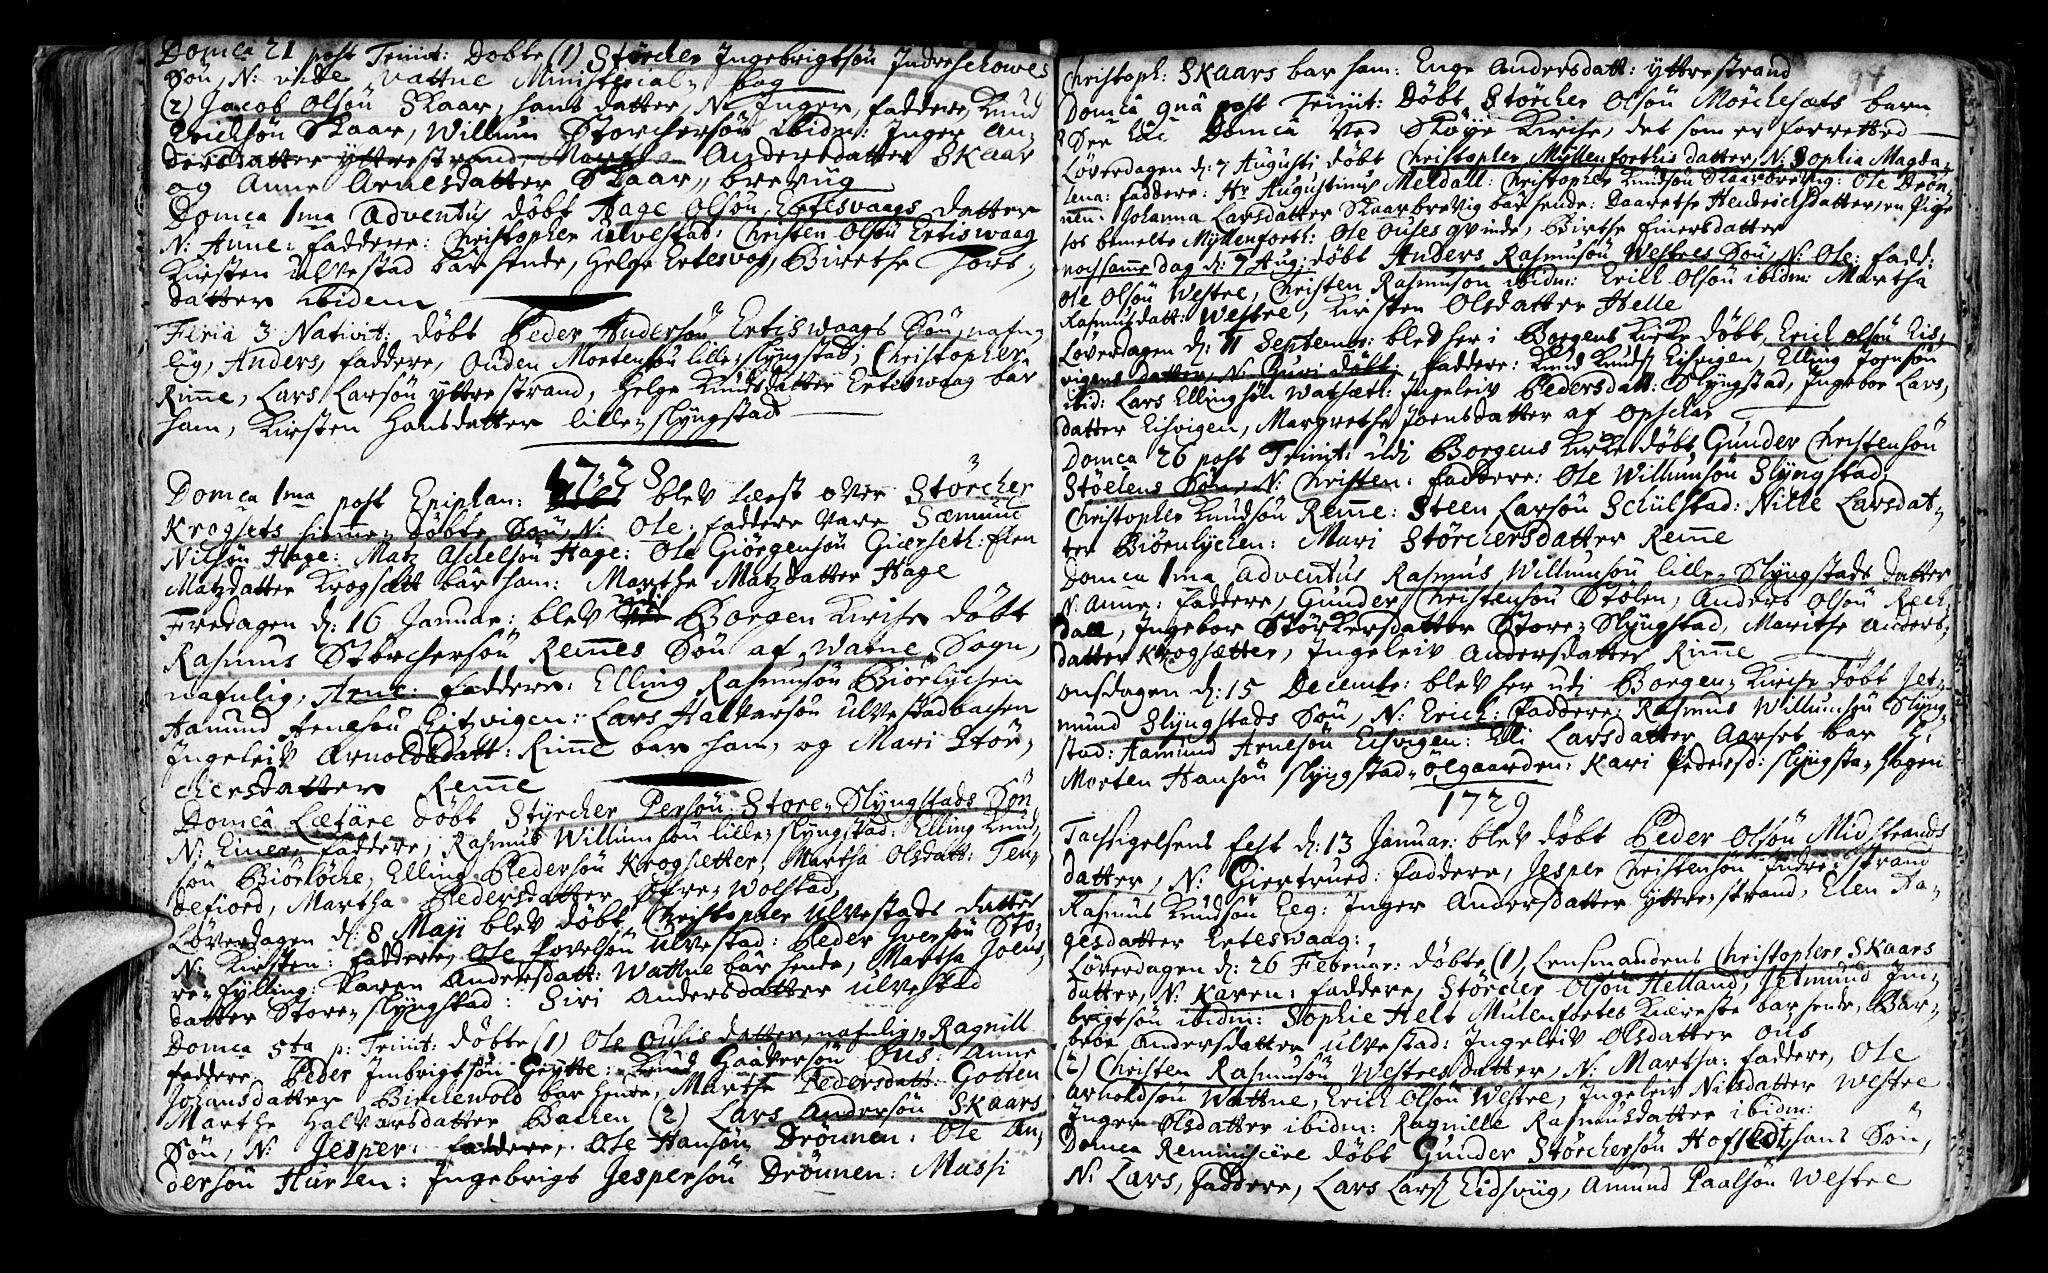 Domca 21 post Trinit: Döbte (1) Störcher Ingebrigtsön Indreschowes
Sön, N: vide Vattne Ministerial- bog
(2) Jacob Olsön Skaar, hans datter, N: Inger, faddere, Knud
Erichsön Skaar, Willum Storchersön ibidm: Inger An-
dersdatter yttrestrand, Martha Andersdatter Skaar
og Anne Arnesdatter Skaar, brevüg
Domca 1ma Adventus döbt Hage Olsön Ertesvaags datter
N: Anne: faddere: Christopher Ulvestad: Christen Olsön Ertiswaag
Kirsten Ulvestad bar hende, Helge Ertesvag, Birethe Tors-
datter ibidem
Feria 3 Nativit: döbt Peder Andersön Ertiswaags Sön, nafn-
lig, Anders, faddere, Ouden Mortensön lille-Slyngstad; Christopher
Rime, Lars Larsön yttrestrand, Helge Knudsdatter Ertiswaag bar
ham, Kirsten Hansdatter lille-Slyngstad
1728
Domca 1ma post Epiphan: blev læst over Störcher
Krogsets hiemme-döbte Sön, N: Ole: faddere vare Sæmund
Nilsön Hage: Matz Aschelsön Hage: Ole Giörgensön Gierseth: Elen
Matzdatter Krogsætt bar ham: Marthe Matzdatter Hage
Fredagen d: 16 Januar: blev udi Borgen Kirche döbt
Rasmus Störchersön Remes Sön af Vatne Sogn,
nafnlig, Arne: faddere: Elling Rasmusön Biörlychen
Hamund Arnesön Eitzvigen: Lars Halvarsön Ulvestadbachen
Ingeleiv Arnoldsdatt: Rime bar ham, og Mari Stör-
chersdatter Reme
Domca Lætare döbt Styrcher Persön Store-Slyngstads Sön
N: Einer, faddere, Rasmus Willumsön lille-Slyngstad: Elling Knud-
sön Biörlöche, Elling Pedersön Krogsetter, Martha Olsdatt: Ten-
nefiord, Martha Pedersdatter öfre-Wolstad
Löverdagen d: 8 Maji blev döbt Christopher Ulvestads datter
N: Kirsten: faddere, Ole Povelsön Ulvestad: Peder Iversön Sto-
re-Fylling: Karen Andersdatt: Wattne bar hende, Martha Joens-
datter Store-Slyngstad: Siri Andersdatter Ulvestad
Domca 5ta p: Trinit: döbte (1) Ole Ousis datter, nafnlig, Ragnill
faddere Peder Imbrigtsön Grytte: Knud Gaaversön Ous: Anne
Johansdatter Birchewold bar hende, Marthe Pedersdatt: Gotten
Marthe Halvarsdatter Bachen (2) Lars Andersön Skaars
Sön, N: Jesper: faddere, Ole Hansön Drönnen: Ole An-
dersön Hurlen: Ingebrigt Jespersön Drönnen: Massi
97
Christoph: Skaars bar ham: Enge Andersdatt: yttrestrand
Domca 9nâ post Trinit: Döbt Störcher Olsön Mörchesæts barn
Domcâ ved Sköye Kirche, det som er forretted
Löverdagen d: 7 Augusti döbt Christopher Myllenforthis datter, N: Sophia Magda-
lena: faddere: Hr Augustinus Meldall: Christopher Knudsön Skaarbrevig: Ole Drön-
nen: Johanna Larsdatter Skaarbrevig bar hende: Daarethe Hendrichsdatter, en Pige
hos bemelte Myllenforth: Ole Ouses qvinde, Birthe Einersdatter
noch samme dag d: 7 Aug: döbt Anders Rasmusön Westres Sön, N: Ole: fadd:
Ole Olsön Westre, Christen Rasmusön ibidm: Erich Olsön ibidm: Martha
Rasmusdatt: Westre, Kirsten Olsdatter Helle
Löverdagen d: 11 Septemb: blev her i Borgens Kirke döbt, Erich Olsön Eids-
vigens datter, N: Guri döbt, faddere: Knud Knuds: Eisvigen, Elling Joensön
ibid: Lars Ellingsön Watsæt: Ingeleiv Pedersdatt: Slyngstad, Ingebor Lars-
datter Eisvigen, Margrethe Joensdatter af Opschar
Domca 26 post Trinit: udj Borgens Kirke döbt Gunder Christensön
Stöelens Sön, N: Christen: faddere: Ole Willumsön Slyngstad,
Christopher Knudsön Reme: Steen Larsön Schulstad: Nille Larsdat-
ter Biörnlychen: Mari Störchersdatter Reme
Domca 1ma Adventus Rasmus Willumsön lille-Slyngstads datter
N: Anne: faddere, Gunder Christensön Stölen, Anders Olsön Rech-
dall, Ingebor Störkersdatter Store-Slyngstad, Marithe Anders-
datter Krogsætter, Ingeleiv Andersdatter Rime
Onsdagen d: 15 Decembr: blev her udj Borgen-Kirche döbt Jet-
mund Slyngstads Sön, N: Erich: faddere: Rasmus Willumsön Slyng-
stad: Hamund Arnesön Eisvigen: Elli Larsdatter Aarset bar h:
Morten Hansön Slyngstad-ölgaarden: Kari Pedersd: Slyngsta-hagen
1729
Tachsigelsens fest d: 13 Januar: blev döbt Peder Olsön Midstrands
datter, N: Giertrued: faddere, Jesper Christensön Indre-Strand
Rasmus Knudsön Eeg: Inger Andersdatter yttre-strand, Elen Ha-
gesdatter Erteswaag:
Löverdagen d: 26 Februar: döbte (1) Lensmandens Christophers Skaars
datter, N: Karen: faddere, Störcher Olsön Helland, Jetmund Im-
brigtsön ibidm: Sophie Helt Mülenfortes Kiereste bar hende, Bar-
broe Andersdatter Ulvestad: Ingeleiv Olsdatter Ous
(2) Christen Rasmusön Westres datter, N: Martha: faddere, Ole
Arnoldsön Wattne, Erich Olsön Westre, Ingeleiv Nilsdatter Westre
Inger Olsdatter ibidm: Ragnille Rasmusdatter ibidm:
Domca Reminiscere döbt Gunder Störchersön Hofstedt, hans Sön,
N: Lars, faddere, Lars Lars: Eidsviig, Amund Paalsön Westre